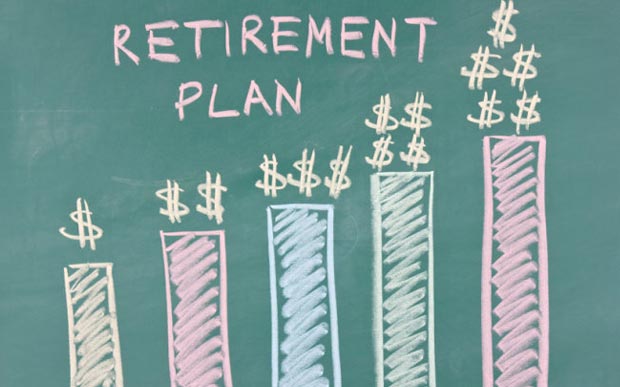 RETIREMENT
PLAN
$
$$
$$$
$$
$$
$
$$
$$